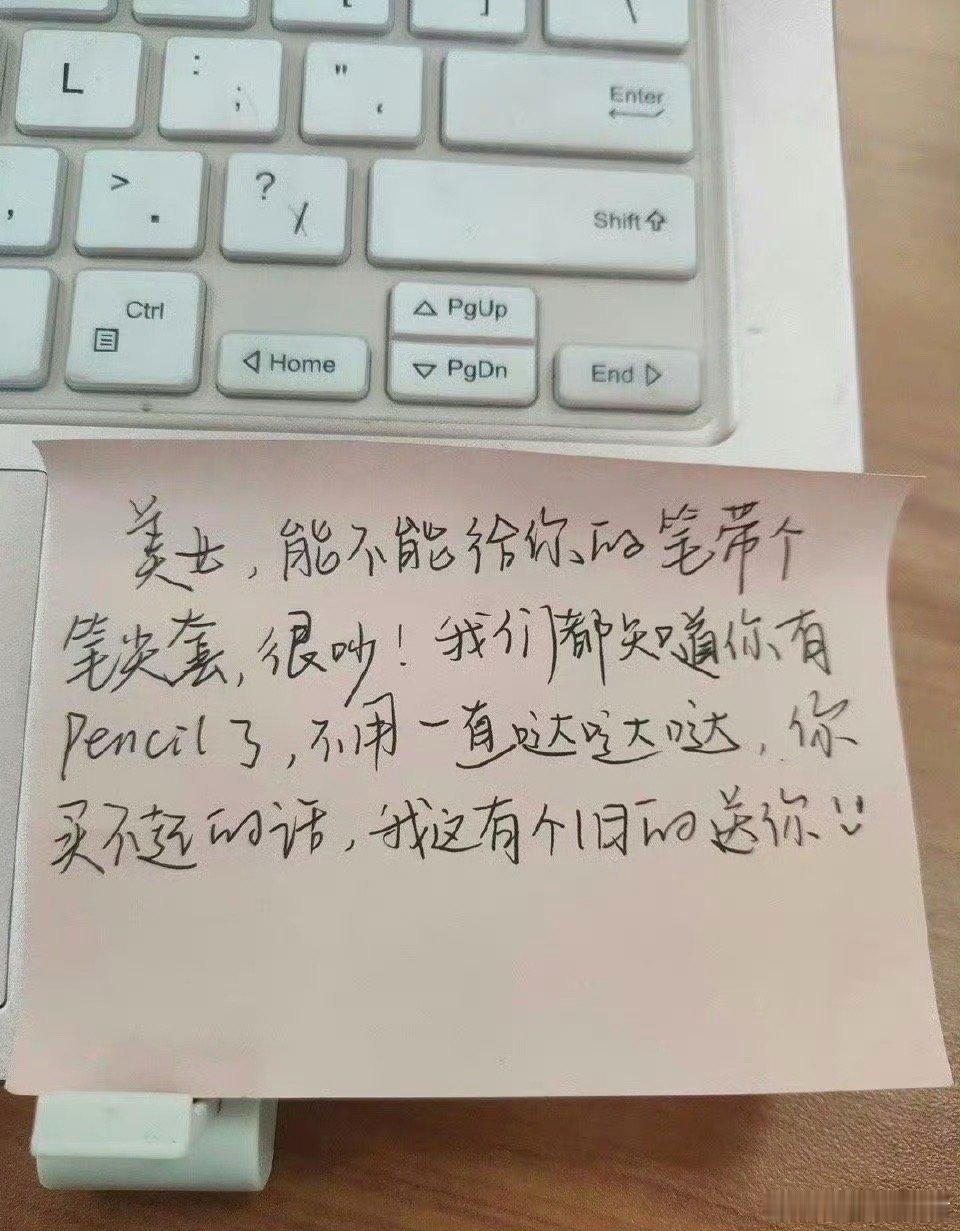 L
: ;
" '
Enter
, > .
? /
Shift
Ctrl
PgUp
Home
PgDn
End
美女,能不能给你的笔带个
笔尖套,很吵!我们都知道你有
Pencil了,不用一直哒哒哒,你
买不起的话,我这有个旧的送你